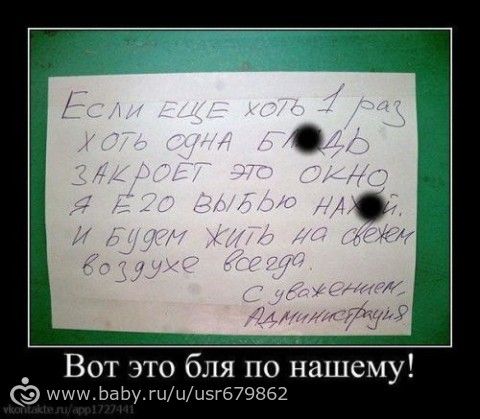 Если ЕЩЕ хоть 1 раз
хоть одна Б ДЬ
ЗАКРОЕТ это ОКНО
я ЕГО ВЫБЬЮ НА Й.
и будем жить на свежем
воздухе всегда.
С уважением,
Администрация
Вот это бля по нашему!
www.baby.ru/u/usr679862
vkontakte.ru/app1727441